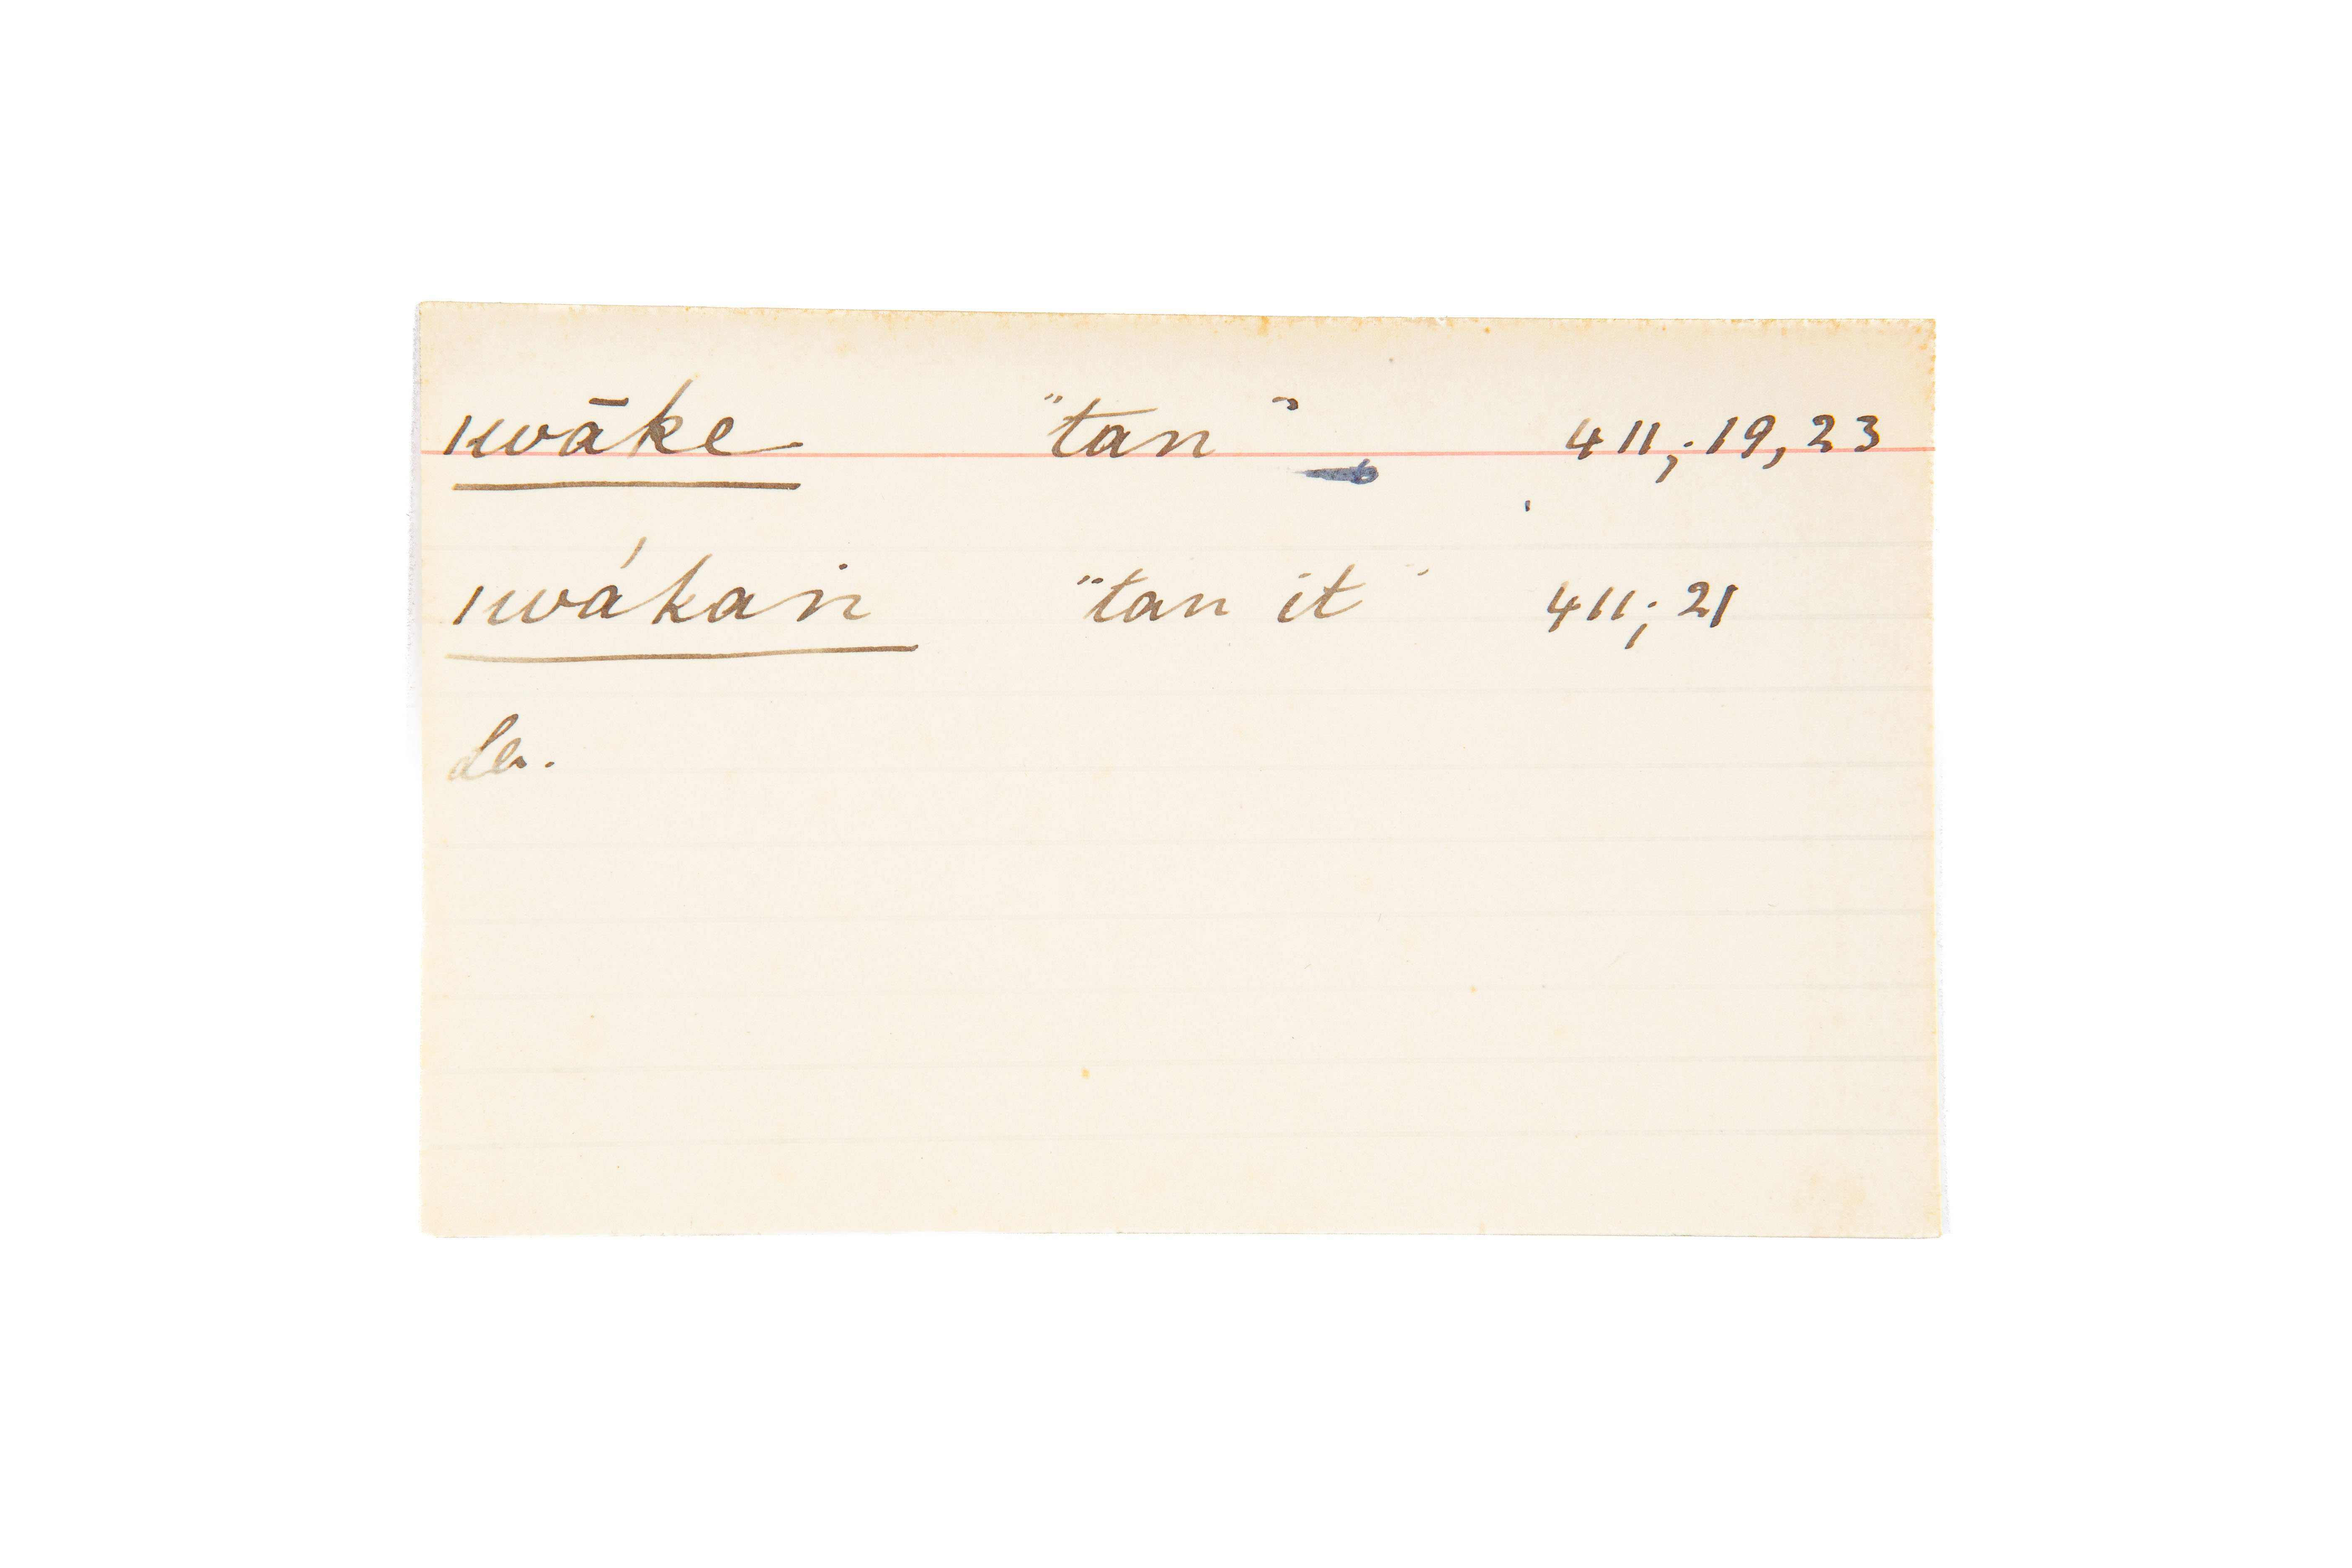 ıwāke "tan" 411; 19, 23
ıwákan "tan it" 411; 21